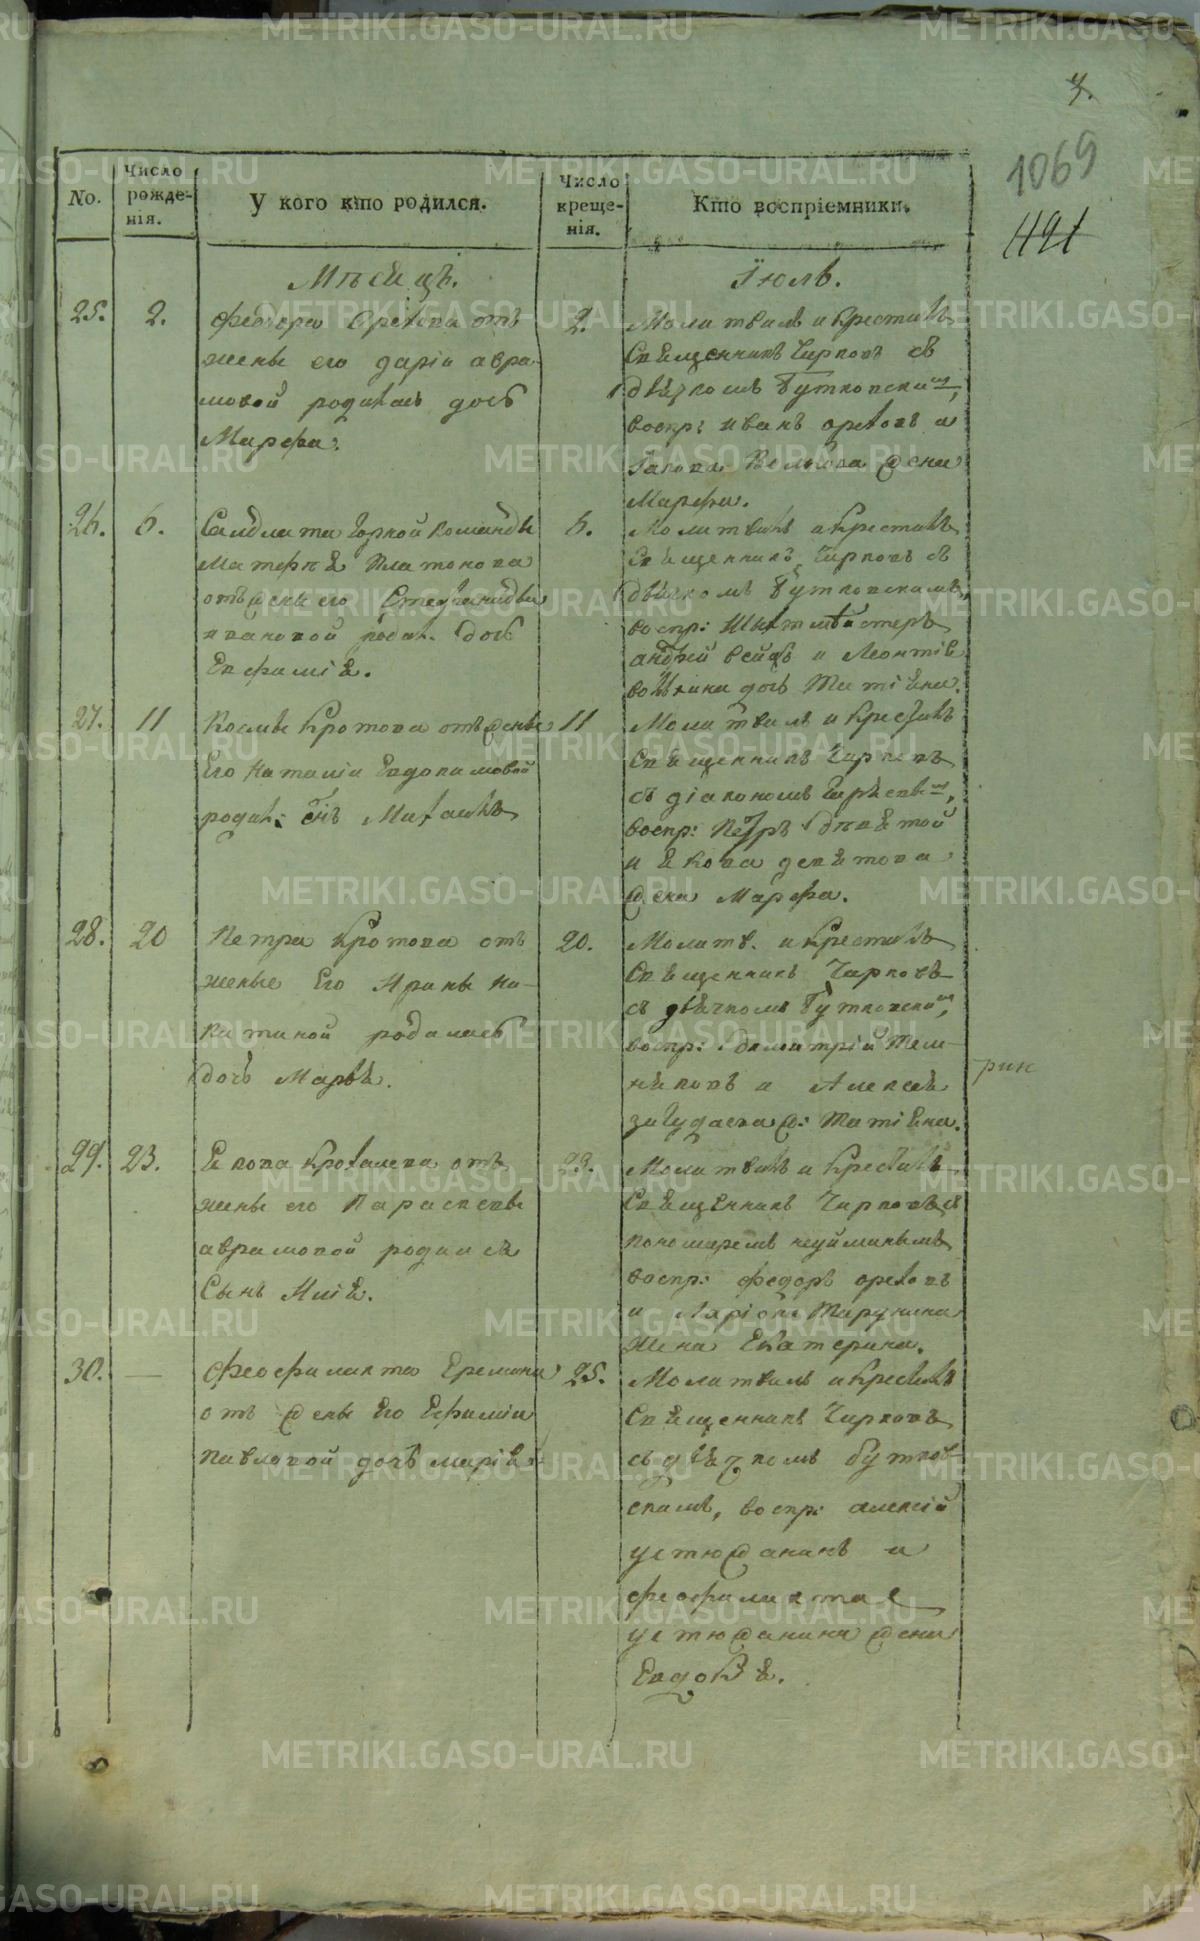 7.
1069
491
No.
Число рожде-нія.
У кого кто родился.
Число креще-нія.
Кто воспріемники.
Мѣсяцъ.
Іюль.
25.
2.
Феодора Орехова отъ
жены его даріи авра-
мовой родилась дочь
Марфа.
2.
Молитвилъ и крестилъ
Священникъ Чирковъ съ
дьячкомъ Бутковским,
воспр: иванъ ореховъ и
жена
Марфа.
26.
6.
Салдата Горной команды
Матфея Платонова
отъ жены его Стефаниды
ивановой родил. дочь
Евфимія.
6.
Молитвилъ и крестилъ
Священникъ Чирковъ съ
дьячкомъ Бутковскимъ,
воспр:
андрей и Леонтія
дочь Татіяна.
27.
11
Космы Кротова отъ жены
Его Наталіи Евдокимовой
родил: сынъ Михаилъ
11
Молитвилъ и крестилъ
Священникъ Чирковъ
съ діакономъ
воспр: Петръ девятой
и Якова девятова
жена Марфа.
28.
20
Петра Кротова отъ
жены Его Ирины Ни-
китиной родилась
дочь Марья.
20.
Молитв. и крестилъ
Священникъ Чирковъ
съ дьячкомъ Бутковским,
воспр: димитрій Мель-
никовъ и Алексея
ж: Татіяна.
рин
29.
23.
Якова Кроталева отъ
жены его Параскевы
аврамовой родился
Сынъ Илія.
23.
Молитвилъ и крестилъ
Священникъ Чирковъ съ
пономаремъ неуйминымъ
воспр: федоръ ореховъ
и Ларіона Тарунина
жена Екатерина.
30.
—
Феофилакта Еремина
отъ жены Его Ефиміи
Павловой дочь марія
25.
Молитвилъ и крестилъ
Священникъ Чирковъ
съ дьячкомъ бутков-
скимъ, воспр: алексій
устюжанинъ и
феофилакта
устюжанина жена
Евдокія.
METRIKI.GASO-URAL.RU